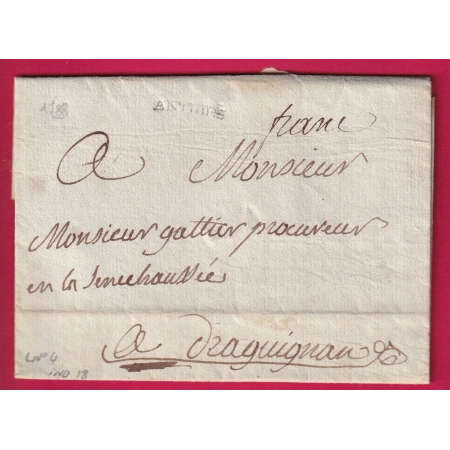 1788
ANTIBES
franc
A Monsieur
Monsieur gattier procureur
en la Senechaussée
a Draguignan